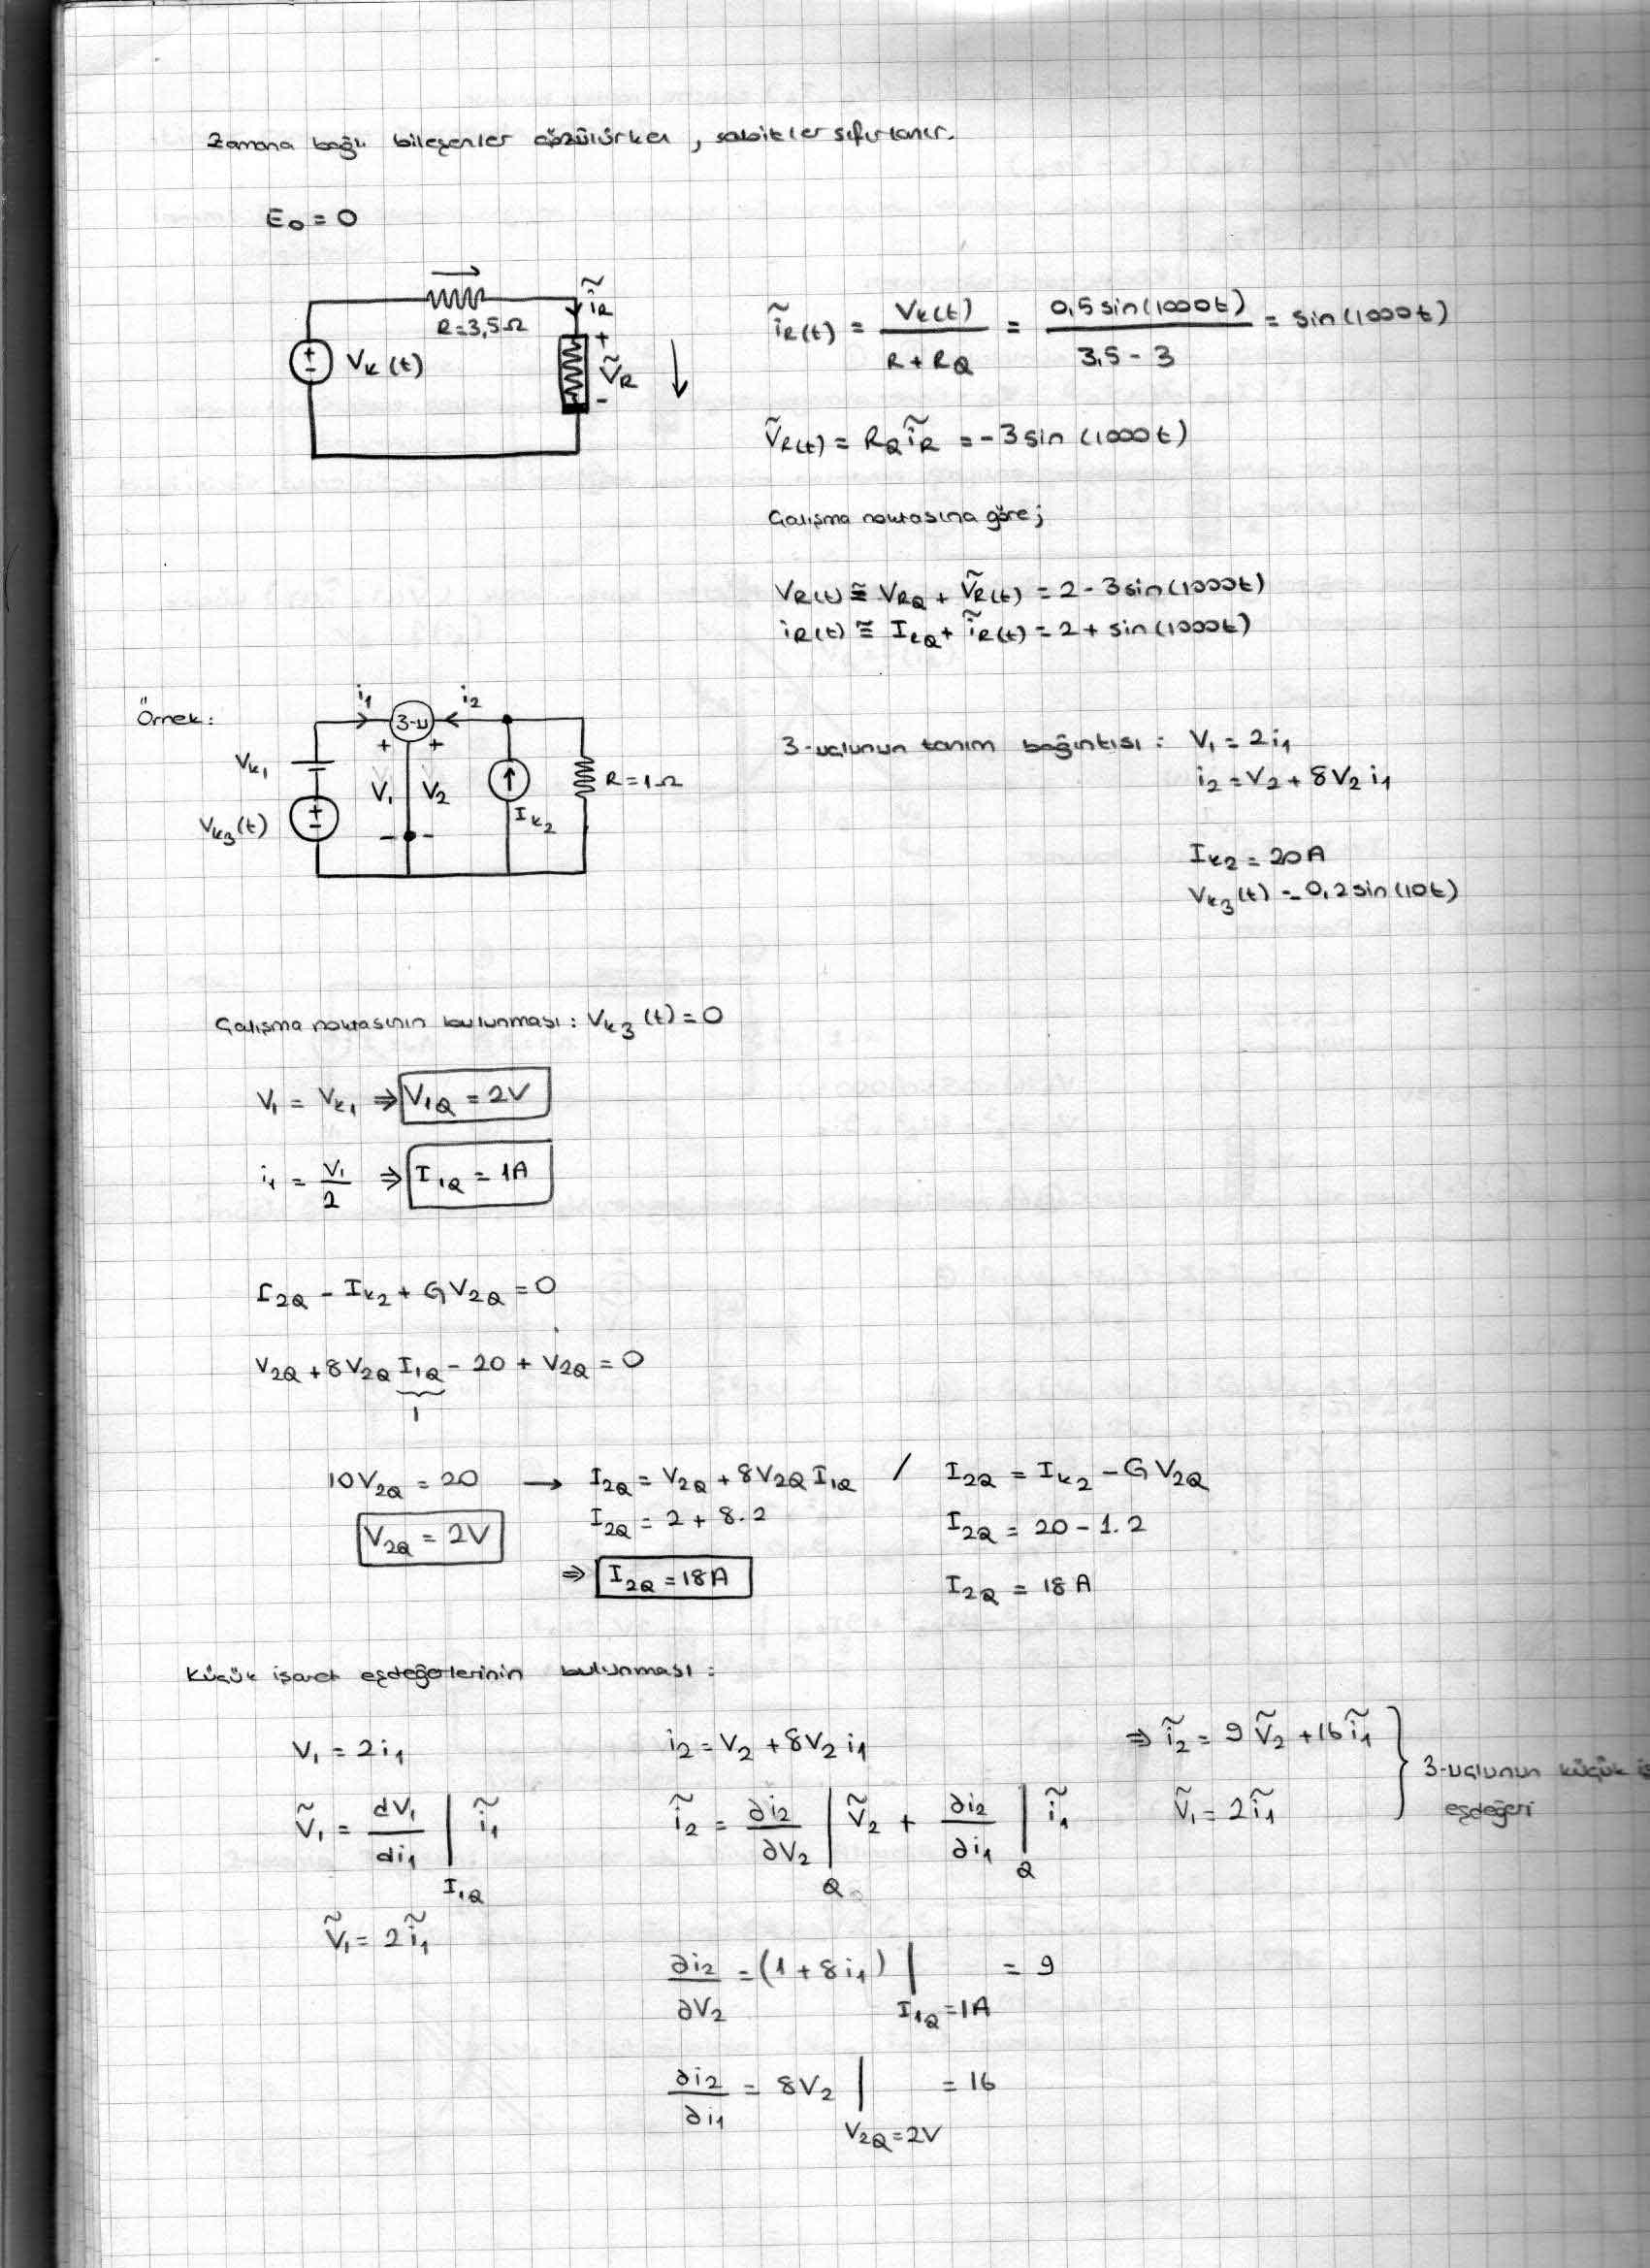 Zamana bağlı bileşenler çözülürken, sabitler sıfırlanır.
E₀ = 0
R=3,5Ω
ĩR
+
Vk(t)
ṼR
-
ĩR(t) = Vk(t) / (R + RQ) = 0,5 sin(1000t) / (3,5 - 3) = sin(1000t)
ṼR(t) = RQ ĩR = -3 sin(1000t)
Çalışma noktasına göre;
VR(t) ≅ VRQ + ṼR(t) = 2 - 3 sin(1000t)
iR(t) ≅ IRQ + ĩR(t) = 2 + sin(1000t)
Örnek:
i₁ 3-u i₂
Vk₁
+ +
V₁ V₂
R=1Ω
Vk₃(t)
Ik₂
- -
3-uçlunun tanım bağıntısı : V₁ = 2i₁
i₂ = V₂ + 8V₂i₁
Ik₂ = 20A
Vk₃(t) = 0,2 sin(10t)
Çalışma noktasının bulunması : Vk₃(t) = 0
V₁ = Vk₁ ⇒ V₁Q = 2V
i₁ = V₁/2 ⇒ I₁Q = 1A
I₂Q - Ik₂ + GV₂Q = 0
V₂Q + 8V₂Q I₁Q - 20 + V₂Q = 0
1
10V₂Q = 20 → I₂Q = V₂Q + 8V₂Q I₁Q / I₂Q = Ik₂ - GV₂Q
V₂Q = 2V I₂Q = 2 + 8.2 I₂Q = 20 - 1.2
⇒ I₂Q = 18A I₂Q = 18A
Küçük işaret eşdeğerlerinin bulunması :
V₁ = 2i₁ i₂ = V₂ + 8V₂i₁ ⇒ ĩ₂ = 9Ṽ₂ + 16ĩ₁
Ṽ₁ = dV₁/di₁ |I₁Q ĩ₁ ĩ₂ = ∂i₂/∂V₂ |Q Ṽ₂ + ∂i₂/∂i₁ |Q ĩ₁ Ṽ₁ = 2ĩ₁
3-uçlunun küçük iş
eşdeğeri
Ṽ₁ = 2ĩ₁
∂i₂/∂V₂ = (1 + 8i₁) |I₁Q=1A = 9
∂i₂/∂i₁ = 8V₂ |V₂Q=2V = 16